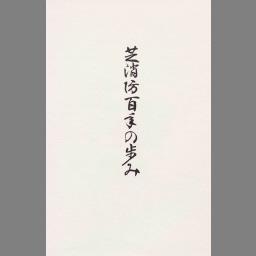 芝消防百年の歩み